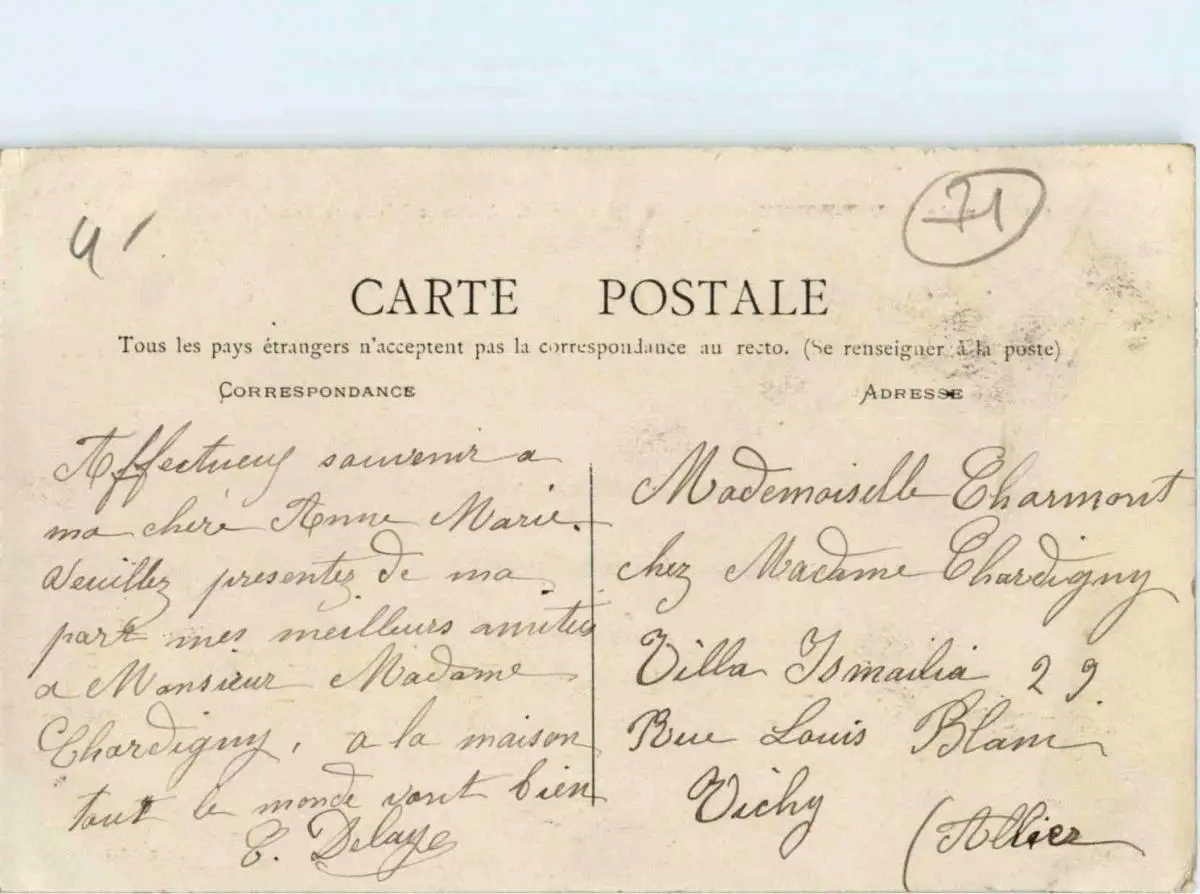 4'
71
CARTE POSTALE
Tous les pays étrangers n'acceptent pas la correspondance au recto. (Se renseigner à la poste)
CORRESPONDANCE
ADRESSE
Affectueux souvenir a
ma chère Anne Marie.
Veuillez presentez de ma
part mes meilleurs amities
a Monsieur Madame
Chardigny, a la maison
tout le monde vont bien
E. Delaye
Mademoiselle Charmont
chez Madame Chardigny
Villa Ismailia 29
Rue Louis Blanc
Vichy
(Allier